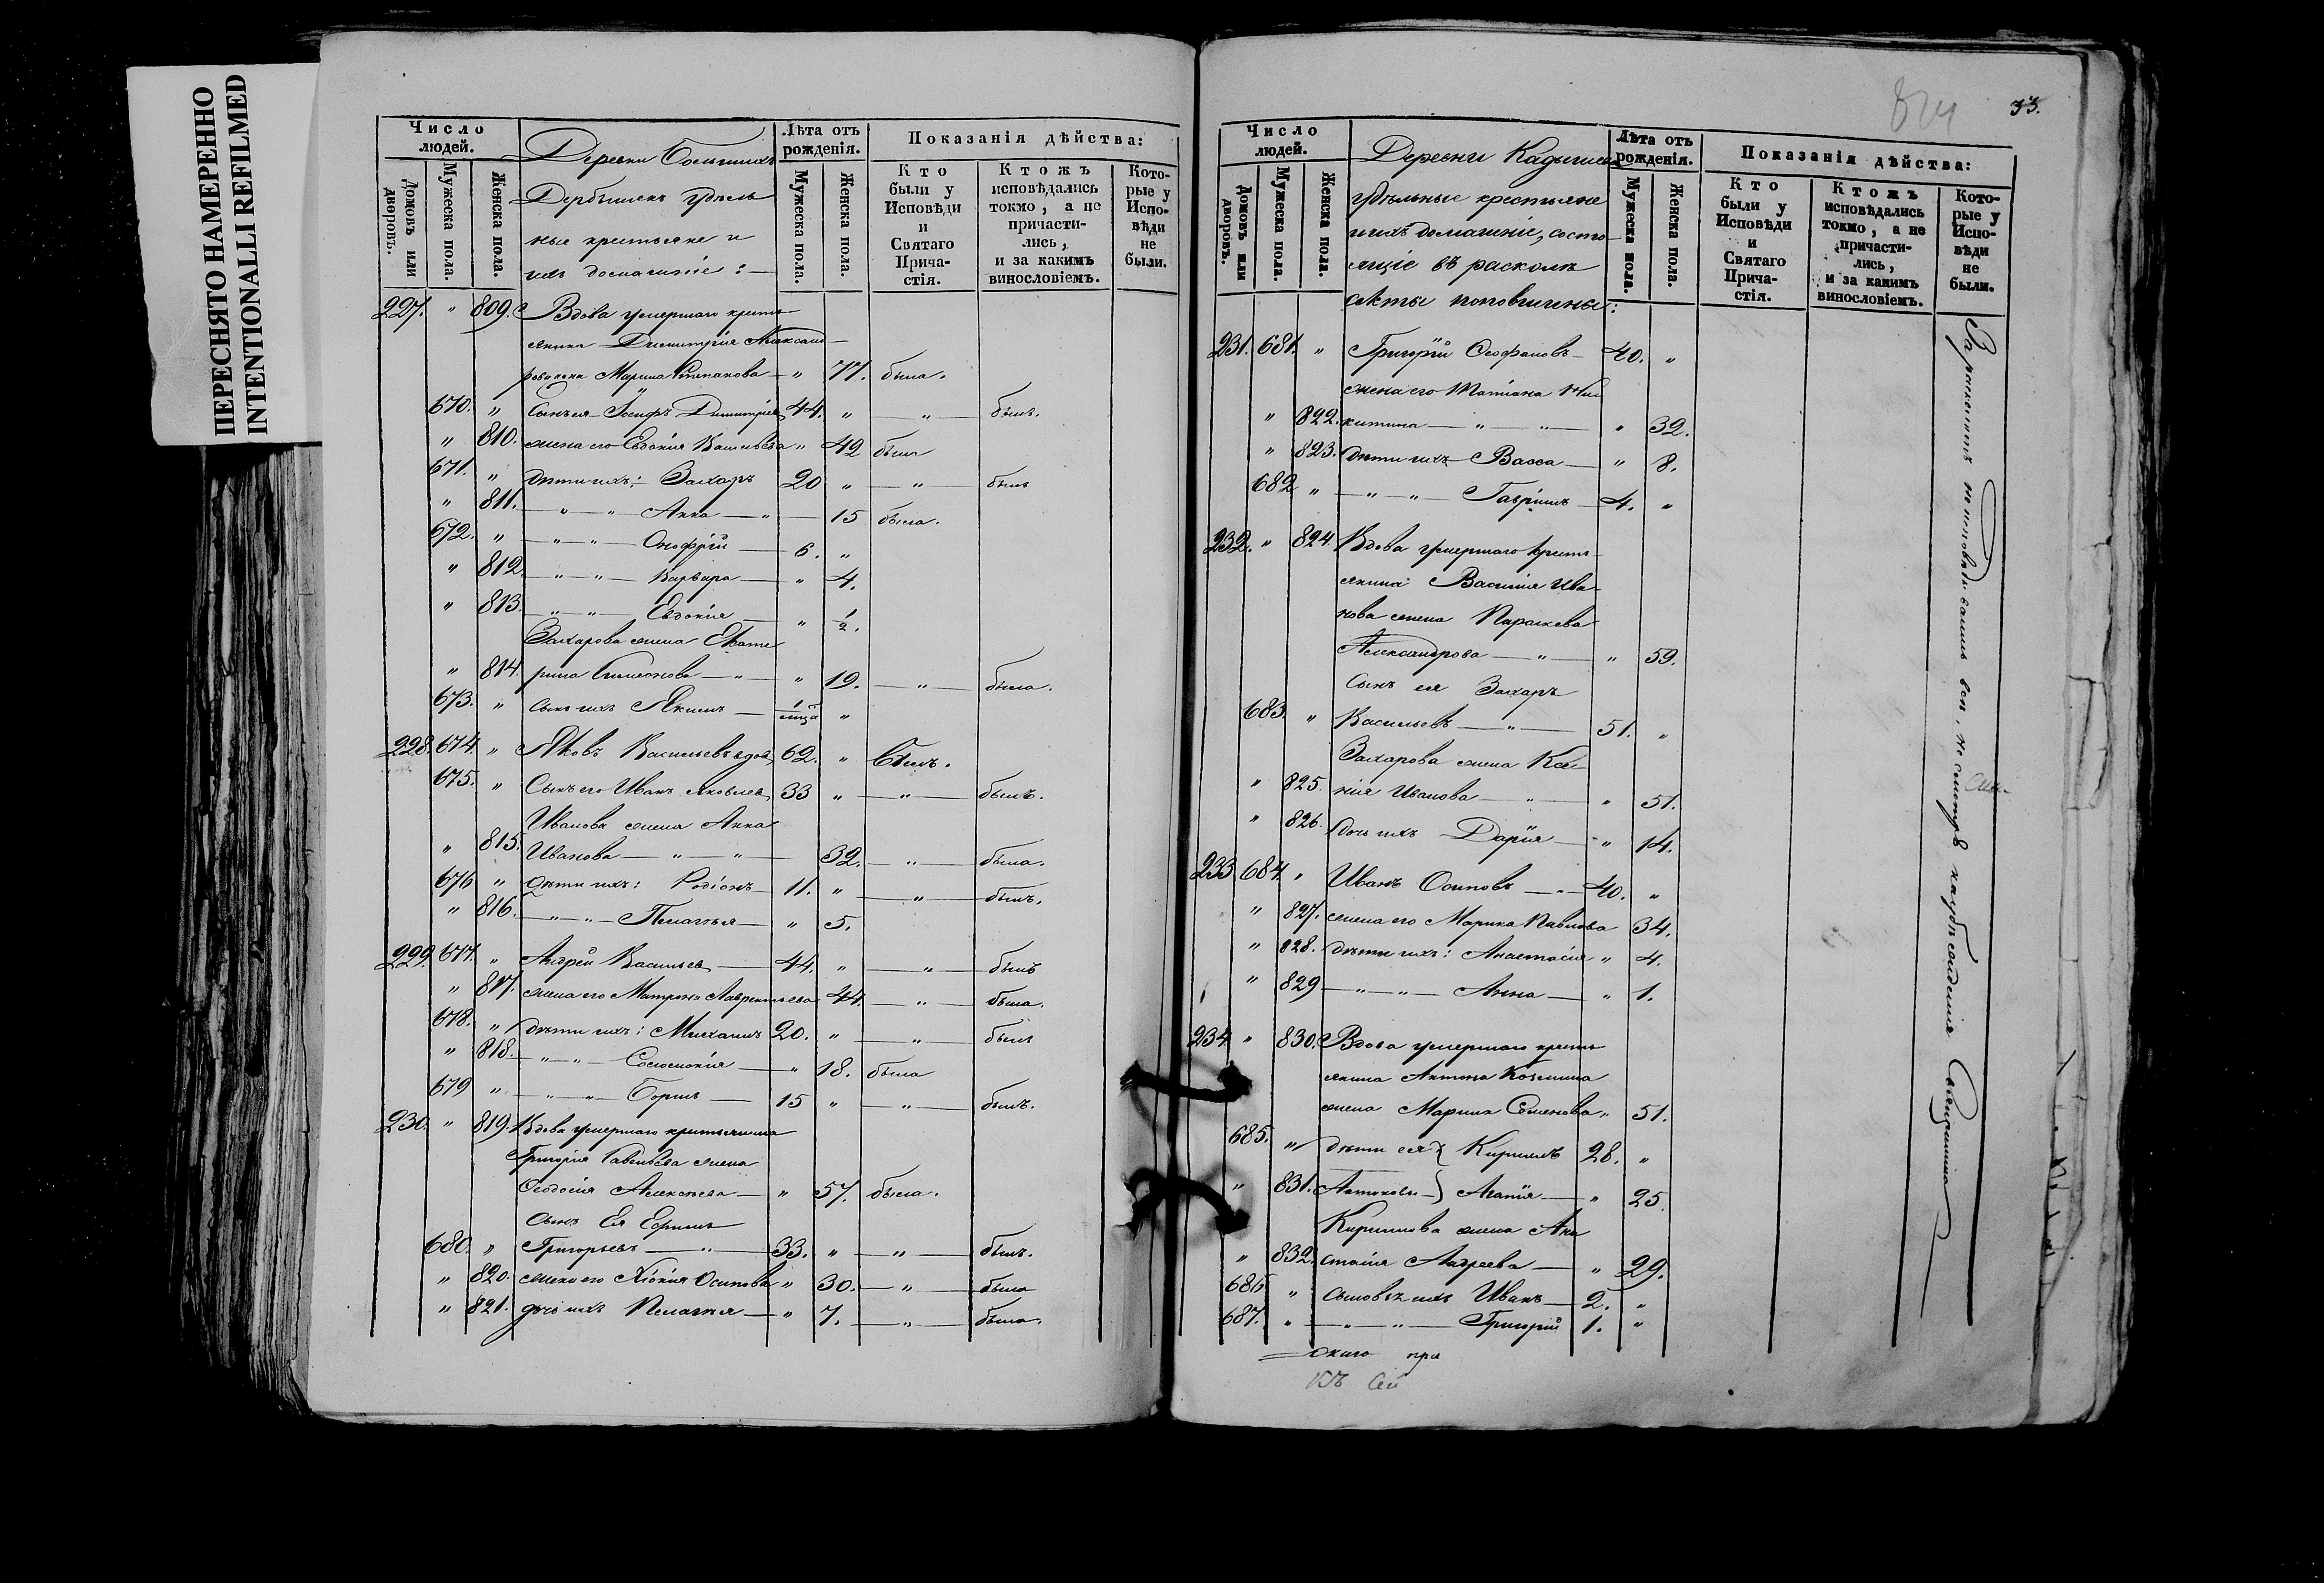 ПЕРЕСНЯТО НАМЕРЕННО
INTENTIONALLI REFILMED
Число людей.
Домовъ или дворовъ.
Мужеска пола.
Женска пола.
Деревни Большихъ
Дербышекъ удѣль
ные крестьяне и
ихъ домашніе:
Лѣта отъ рожденія.
Мужеска пола.
Женска пола.
Показанія дѣйства:
Кто были у Исповѣди и Святаго Причастія.
Ктожъ исповѣдались токмо, а не причастились, и за какимъ винословіемъ.
Которые у Исповѣди не были.
227. " 809. Вдова умершаго кресть
янина Димитрія Александ
Марина Степанова " 77. была.
670. " Сынъ ея Іосифъ Димитріев 44. " " былъ.
" 810. жена его Евдокія Васильева " 42 была
671. " дѣти ихъ: Захаръ 20 " " былъ
" 811. " " Анна " 15 была.
672. " " " Онофрій 6. "
" 812. " " Варвара " 4.
" 813. " " Евдокія " 1/2.
Захарова жена Екате
" 814. рина Симеонова " " 19. " была.
673. " сынъ ихъ Якимъ 1 мца "
228. 674. " Яковъ Васильевъ вдов 62. " былъ.
675. " Сынъ его Иванъ Яковлев 33 " " былъ.
Иванова жена Анна
" 815. Иванова " " 32. " была.
676 " Дѣти ихъ: Родіонъ 11. " " былъ.
" 816. " " Пелагея " 5.
229. 677. " Андрей Васильев 44. " " былъ
" 817. жена его Матрона Лаврентьева 44. " была.
678. " дѣти ихъ: Михаилъ 20. " " былъ
" 818. " " Соломонія " 18. была
679 " " " Борисъ 15 " " былъ.
230. " 819. Вдова умершаго крестьянина
Григорія Савельева жена
Ѳеодосія Алексѣева " 57. была.
Сынъ Ея Ефимъ
680. " Григорьевъ " 33. " " былъ.
" 820. жена его Хіонія Осипова " 30. " была
" 821. дочь ихъ Пелагея " 7. " была.
33.
Число людей.
Домовъ или дворовъ.
Мужеска пола.
Женска пола.
Деревни Кадышева
удѣльные крестьяне
и ихъ домашніе, состо
ящіе въ расколѣ
секты поповщины:
Лѣта отъ рожденія.
Мужеска пола.
Женска пола.
Показанія дѣйства:
Кто были у Исповѣди и Святаго Причастія.
Ктожъ исповѣдались токмо, а не причастились, и за какимъ винословіемъ.
Которые у Исповѣди не были.
231. 681. " Григорій Ѳеофановъ 40. "
жена его Татіана Ни
" 822. китина " " " 32.
" 823. дѣти ихъ Васса " 8.
682 " " " Гавріилъ 4. "
232. " 824. Вдова умершаго кресть
янина Василія Ива
нова жена Параскева
Александрова " " 59.
Сынъ ея Захаръ
683. " Васильевъ " 51. "
Захарова жена Ксе
" 825. нія Иванова " " 51.
" 826. дочь ихъ Дарія " 14.
233 684. " Иванъ Осиповъ " 40. "
" 827. жена его Марина Павлова 34.
" 828. дѣти ихъ: Анастасія " 4.
" 829 " " Анна " 1.
234. " 830. Вдова умершаго кресть
янина Антона Козмина
жена Марина Семенова " 51.
685. " дѣти ея Кирилъ 28. "
" 831. Антоновы Агапія " 25.
Кирилова жена Ана
" 832. стасія Андреева " 29.
686 " сыновья ихъ Иванъ 2. "
687. " " " Григорій 1. "